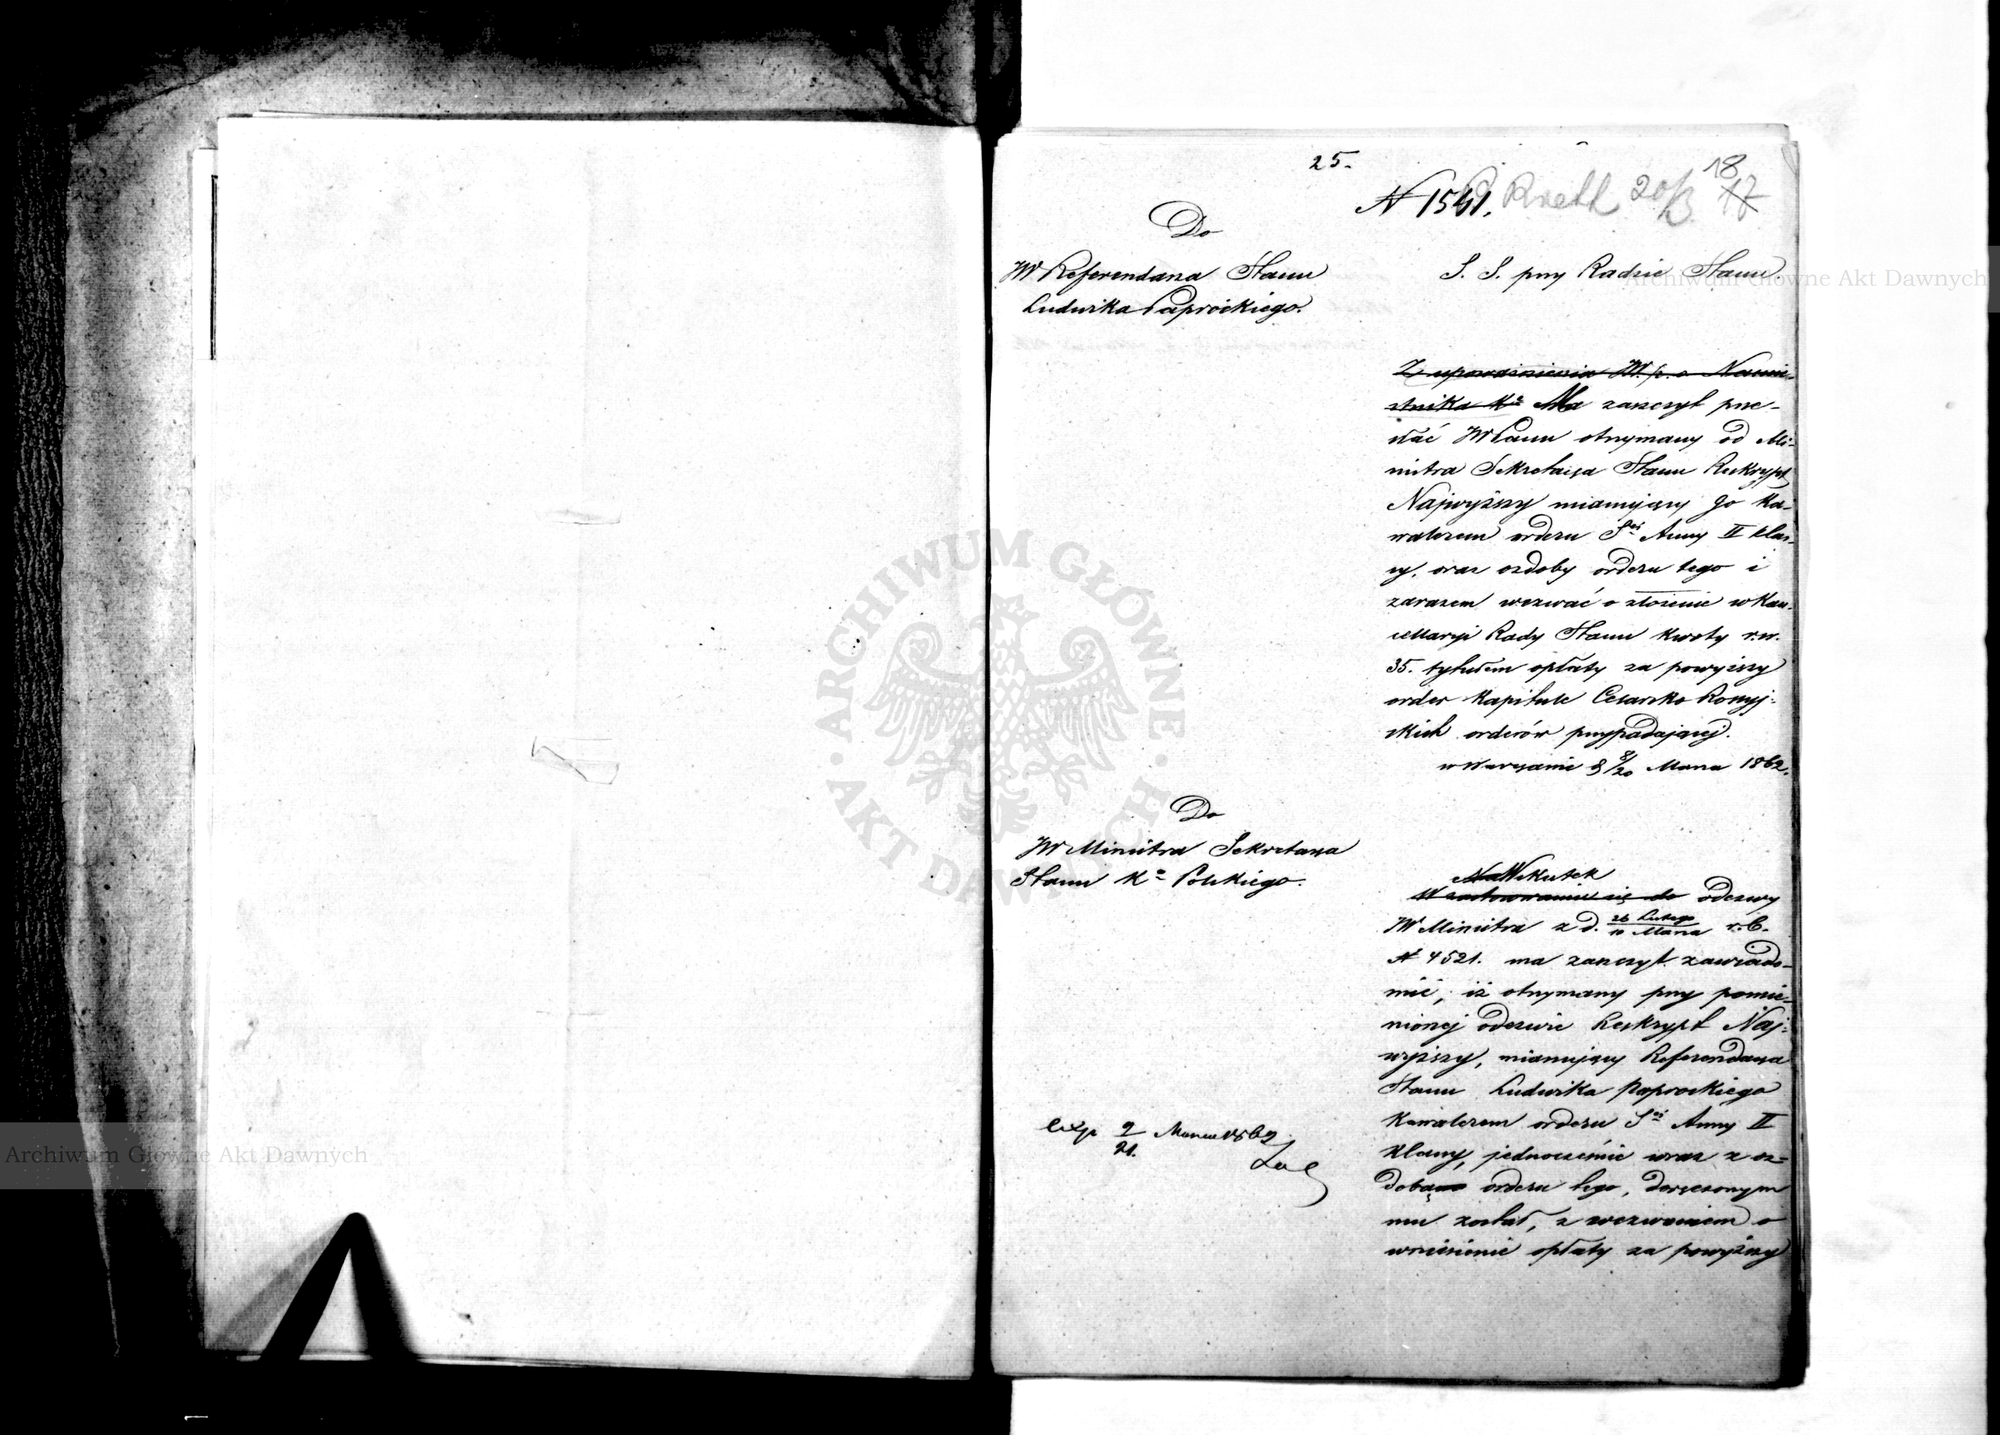 25.
18
N 1541.
20/3
17
Do
JW Referendarza Stanu
Ludwika Paprockiego.
S. S. przy Radzie Stanu.
Z upoważnienia JW. p. o Namie-
stnika Kr. Ma zaszczyt prze-
słać JWPanu otrzymany od Mi-
nistra Sekretarza Stanu Reskrypt
Najwyższy mianujący Go Ka-
walerem orderu Sej Anny II klas-
sy, oraz ozdoby orderu tego i
zarazem wezwać o złożenie w Kan-
cellaryi Rady Stanu kwoty r.sr.
35. tytułem opłaty za powyższy
order Kapitule Cesarsko Rossyj-
skich orderów przypadającej.
w Warszawie d 8/20 Marca 1862.
Do
JW Ministra Sekretarza
Stanu Ka Polskiego.
Na Wskutek
W zastosowaniu się do odezwy
JW Ministra z d. 26 Lutego / 10 Marca r. b.
N 4521. ma zaszczyt zawiado-
mić, iż otrzymany przy pomie-
nionej odezwie Reskrypt Naj-
wyższy, mianujący Referendarza
Stanu Ludwika Paprockiego
Kawalerem orderu Sej Anny II
klassy, jednocześnie wraz z oz-
dobą orderu tego, doręczonym
mu został, z wezwaniem o
wniesienie opłaty za powyższy
exp 9/21. Marca 1862
Archiwum Główne Akt Dawnych
Archiwum Główne Akt Dawnych
ARCHIWUM GŁÓWNE · AKT DAWNYCH ·